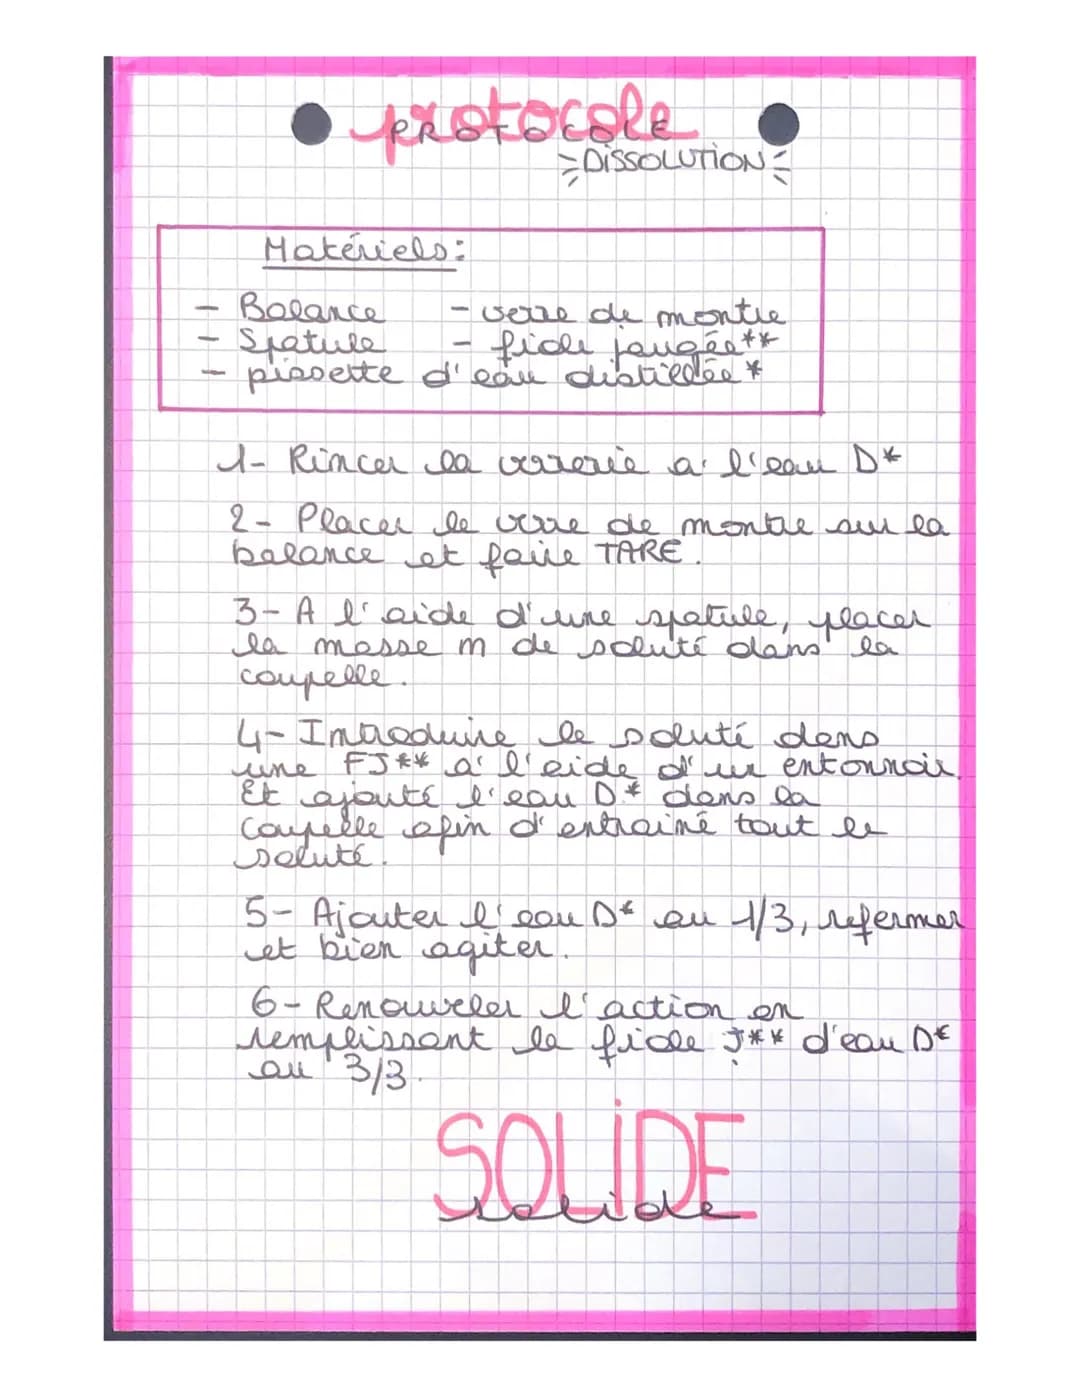 protocole
PROTOCOLE
DiSSOLUTiON
Matériels:
- Balance - verre de montre
- Spatule - fiole jaugée**
- pissette d'eau distillée*
1- Rincer la verrerie à l'eau D*
2- Placer le verre de montre sur la
balance et faire TARE.
3- A l'aide d'une spatule, placer
la masse m de soluté dans la
coupelle.
4- Introduire le soluté dans
une FJ** à l'aide d'un entonnoir.
Et ajouté l'eau D* dans la
coupelle afin d'entrainé tout le
soluté.
5- Ajouter l'eau D* au 1/3, refermer
et bien agiter.
6- Renouveler l'action en
remplissant la fiole J** d'eau D*
au 3/3.
SOLiDE
solide